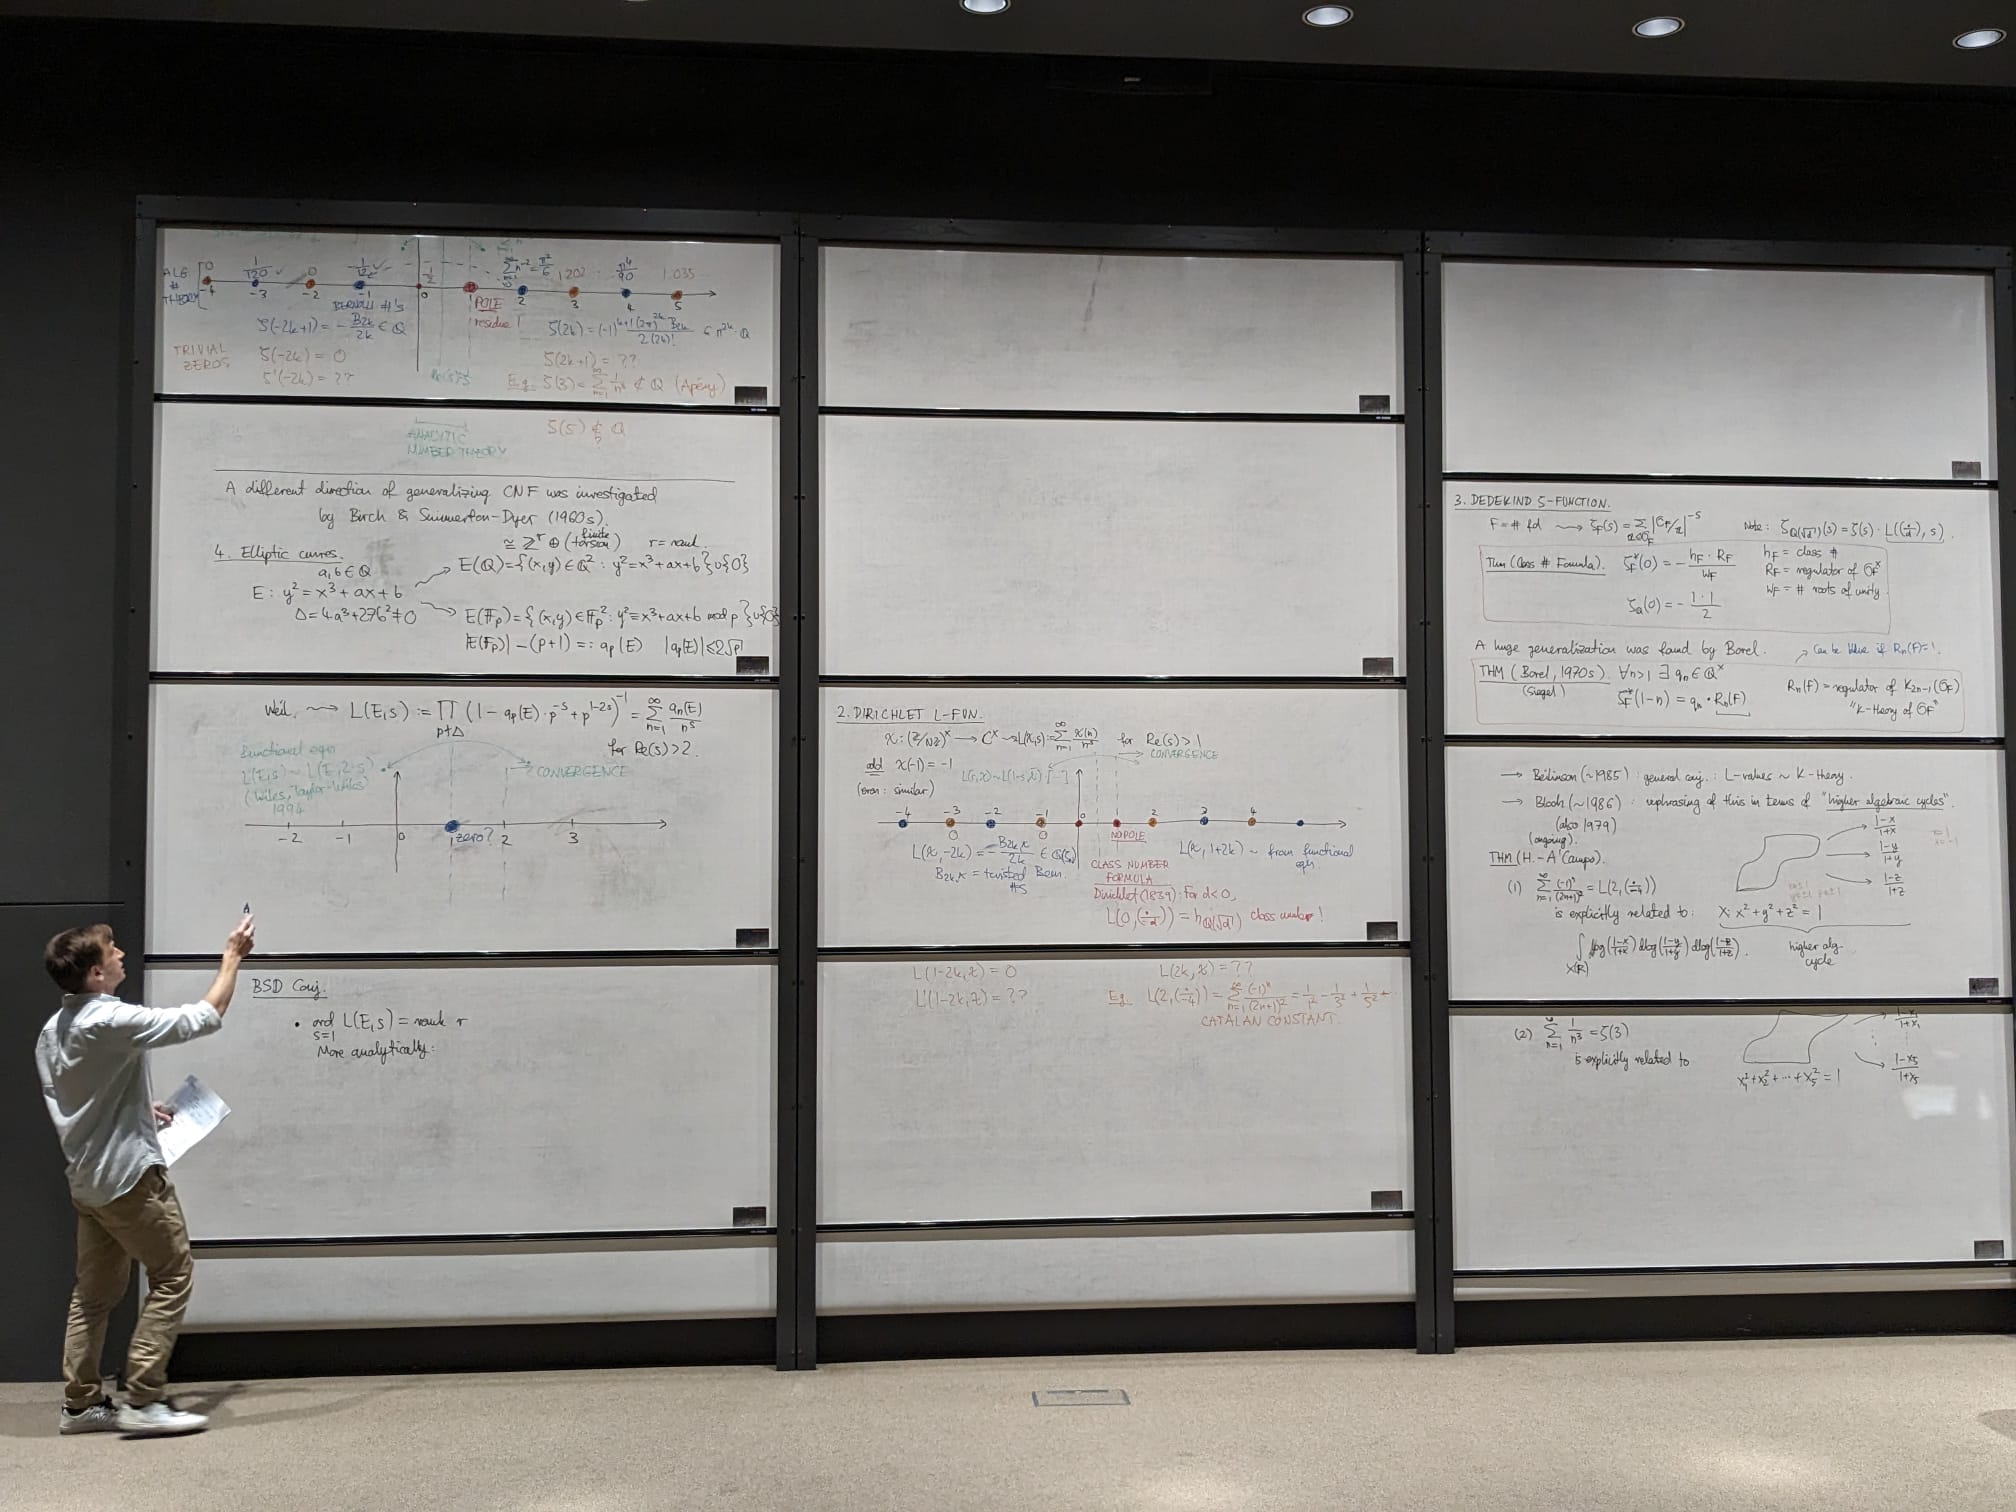 ALG
#
THEORY
0 1/120 ✓ 0 -1/12 ✓ -1/2 ∑n⁻² = π²/6 1.202 π⁴/90 1.035
-4 -3 -2 -1 0 1 2 3 4 5
BERNOULLI #'s
POLE
residue 1
ζ(-2k+1) = -B2k/2k ∈ Q
ζ(2k) = (-1)^(k+1) (2π)^2k B2k / 2(2k)! ∈ π^2k · Q
TRIVIAL
ZEROS
ζ(-2k) = 0
ζ'(-2k) = ??
ζ(2k+1) = ??
E.g. ζ(3) = ∑ 1/n³ ∉ Q (Apéry)
ζ(5) ∉ Q
?
ANALYTIC
NUMBER THEORY
A different direction of generalizing CNF was investigated
by Birch & Swinnerton-Dyer (1960s).
≅ Z^r ⊕ (finite torsion) r = rank.
4. Elliptic curves.
a,b ∈ Q
E: y² = x³ + ax + b
Δ = 4a³ + 27b² ≠ 0
E(Q) = {(x,y) ∈ Q² : y² = x³ + ax + b} ∪ {0}
E(Fp) = {(x,y) ∈ Fp² : y² = x³ + ax + b mod p} ∪ {0}
|E(Fp)| - (p+1) =: ap(E) |ap(E)| ≤ 2√p
Weil ⇝ L(E,s) := ∏ (1 - ap(E)·p^-s + p^(1-2s))^-1 = ∑ an(E)/n^s
p∤Δ
for Re(s) > 2.
Functional eqn
L(E,s) ~ L(E,2-s)
(Wiles, Taylor-Wiles)
1994
CONVERGENCE
-2 -1 0 1 zero? 2 3
BSD Conj.
• ord L(E,s) = rank r
s=1
More analytically:
2. DIRICHLET L-FUN.
χ: (Z/NZ)^× → C^× ⇝ L(χ,s) := ∑ χ(n)/n^s for Re(s) > 1
CONVERGENCE
odd χ(-1) = -1
(even: similar)
-4 -3 -2 -1 0 1 2 3 4
0 0
NO POLE
L(χ,-2k) = -B2k,χ/2k
B2k,χ = twisted Bern.
#s
L(χ,1+2k) ~ from functional
eqn.
CLASS NUMBER
FORMULA
Dirichlet (1839): For d<0,
L(0,(·/d)) = hQ(√d) class number!
L(1-2k,χ) = 0
L'(1-2k,χ) = ??
L(2k,χ) = ??
E.g. L(2,(·/-4)) = ∑ (-1)^n/(2n+1)² = 1/1² - 1/3² + 1/5² + ...
CATALAN CONSTANT.
3. DEDEKIND ζ-FUNCTION.
F = # fd ⇝ ζF(s) = ∑ |OF/a|^-s
Note: ζQ(√d)(s) = ζ(s) · L((·/d), s).
Thm (Class # Formula). ζF*(0) = - hF · RF / wF
hF = class #
RF = regulator of OF^×
wF = # roots of unity.
ζQ(0) = - 1·1/2
A huge generalization was found by Borel.
→ Can be blue if Rn(F)=1.
THM (Borel, 1970s). ∀n>1 ∃ qn ∈ Q^×
(Siegel)
ζF*(1-n) = qn · Rn(F)
Rn(F) = regulator of K2n-1(OF)
"K-theory of OF"
→ Beilinson (~1985): general conj.: L-values ~ K-theory.
→ Bloch (~1986): rephrasing of this in terms of "higher algebraic cycles".
(also 1979)
(ongoing).
THM (H. - A'Campo).
(1) ∑ (-1)^n/(2n+1)² = L(2,(·/-4))
is explicitly related to: X: x² + y² + z² = 1
1-x/1+x
1-y/1+y
1-z/1+z
∫ log(1-x/1+x) dlog(1-y/1+y) dlog(1-z/1+z).
X(R)
higher alg.
cycle
(2) ∑ 1/n³ = ζ(3)
is explicitly related to
x1² + x2² + ... + x5² = 1
1-x1/1+x1
1-x5/1+x5